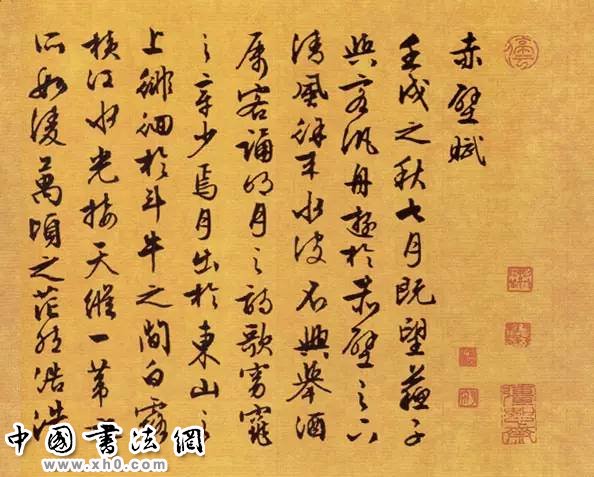 赤壁賦
壬戌之秋七月既望蘇子
與客汎舟遊於赤壁之下
清風徐來水波不興舉酒
屬客誦明月之詩歌窈窕
之章少焉月出於東山之
上徘徊於斗牛之間白露
橫江水光接天縱一葦之
所如凌萬頃之茫然浩浩
停雲
中國書法網
www.xh0.com